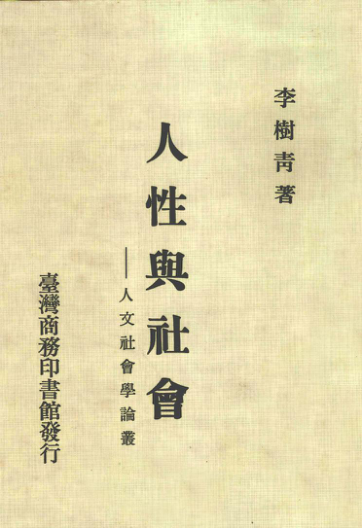 李樹靑著
人性與社會
——人文社會學論叢
臺灣商務印書館發行